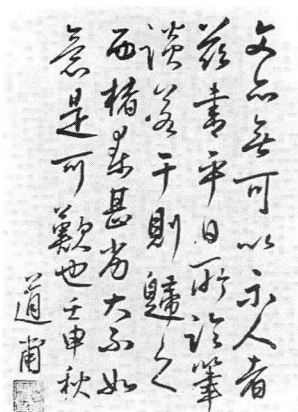 文亦無可以示人者
茲書平日所論筆
談若干則歸之
西楷書甚劣大不如
意是可歎也壬申秋
道甫